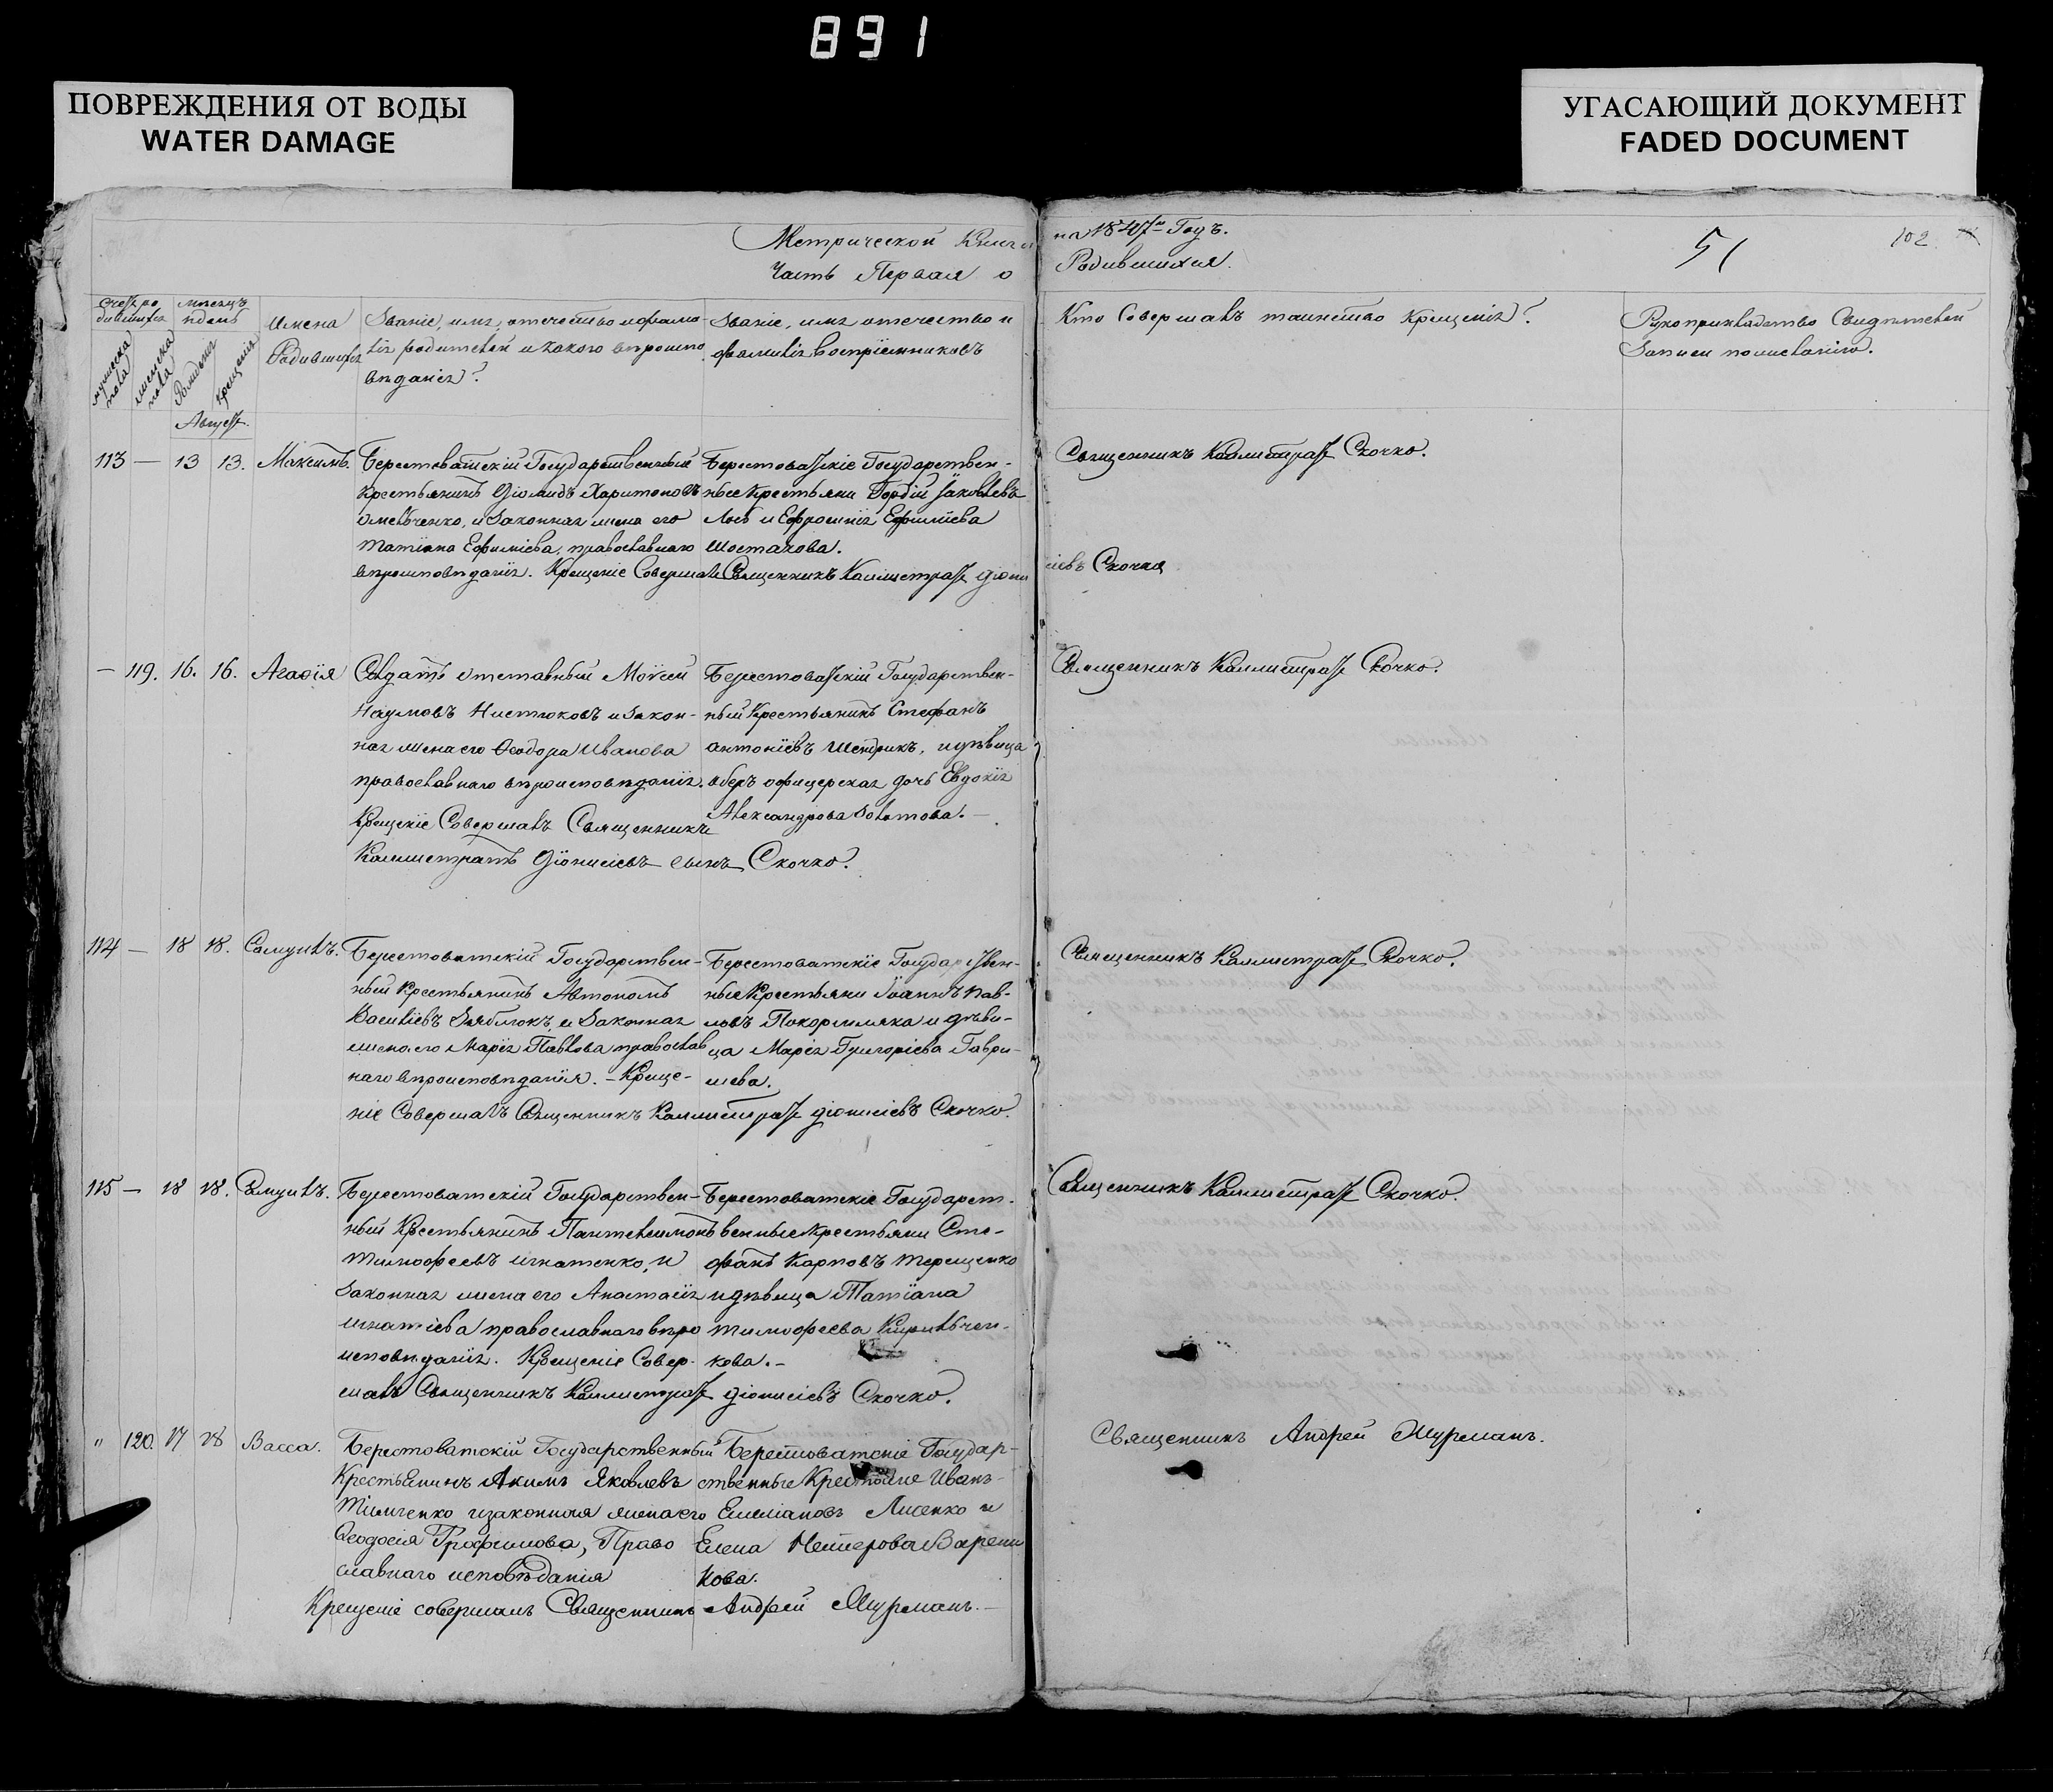 891
ПОВРЕЖДЕНИЯ ОТ ВОДЫ
WATER DAMAGE
УГАСАЮЩИЙ ДОКУМЕНТ
FADED DOCUMENT
Метрической Книги на 1847й Годъ.
Часть Первая о Родившихся.
51
102
Счетъ ро
дившихся
мѣсяцъ
и день
мужеска
пола
женска
пола
Рожденія
Крещенія
Августъ.
Имена
Родившихся
Званіе, имя, отечество и фами-
лія родителей и какого вѣроиспо
вѣданія?
Званіе, имя отечество и
фамилія воспріемниковъ
Кто Совершалъ таинство Крещенія?
Рукоприкладство Свидѣтелей
Записи по желанію.
113 — 13 13. Максимъ.
Берестоватскій Государственный
крестьянинъ Діомидъ Харитоновъ
Омельченко, и Законная жена его
Татіана Ефиміева, православнаго
вѣроисповѣданія. Крещеніе Совершалъ Священникъ Каллистратъ Діони
сіевъ Скочко
Берестоватскіе Государствен-
ные Крестьяни Гордій Іаковлевъ
и Ефросинія Ефиміева
Шостакова.
Священникъ Каллистратъ Скочко.
— 119. 16. 16. Агаѳія
Солдатъ отставный Моѵсей
Наумовъ Нистюковъ и закон-
ная жена его Ѳеодора Иванова
православнаго вѣроисповѣданія.
Крещеніе Совершалъ Священникъ
Каллистратъ Діонисіевъ сынъ Скочко.
Берестоватскій Государствен-
ный Крестьянинъ Стефанъ
антоніевъ Шендрикъ, и дѣвица
оберъ офицерская дочь Евдокія
Александрова Золотова. —
Священникъ Каллистратъ Скочко.
114 — 18 18. Самуилъ.
Берестоватскій Государствен-
ный Крестьянинъ Автономъ
Василіевъ Зяблюкъ, и Законная
жена его Марія Павлова православ
наго вѣроисповѣданія. — Креще-
ніе Совершалъ Священникъ Каллистратъ Діонисіевъ Скочко.
Берестоватскіе Государствен-
ные Крестьяни Іоаннъ Пав-
ловъ Покормляка и дѣви-
ца Марія Григоріева Гаври-
шева.
Священникъ Каллистратъ Скочко.
115 — 18 18. Самуилъ.
Берестоватскій Государствен-
ный Крестьянинъ Пантелеимонъ
Тимофеевъ Игнатенко, и
Законная жена его Анастасія
Игнатіева православнаго вѣро
исповѣданія. Крещеніе Совер-
шалъ Священникъ Каллистратъ Діонисіевъ Скочко.
Берестоватскіе Государст-
венные крестьяни Сте-
фанъ Карповъ Терещенко
и дѣвица Татіана
Тимофеева Кирильчен-
кова. —
Священникъ Каллистратъ Скочко.
" 120. 17 18 Васса.
Берестоватскій Государственный
Крестьянинъ Акимъ Яковлевъ
Тимченко и законная жена его
Ѳеодосія Трофимова, Право
славнаго исповѣданія
Крещеніе совершалъ Священникъ Андрей Мурманъ. —
Берестоватскіе Государ-
ственные Крестьяне Иванъ
Емеліановъ Лисенко и
Елена Нестерова Варени
кова.
Священникъ Андрей Мурманъ.